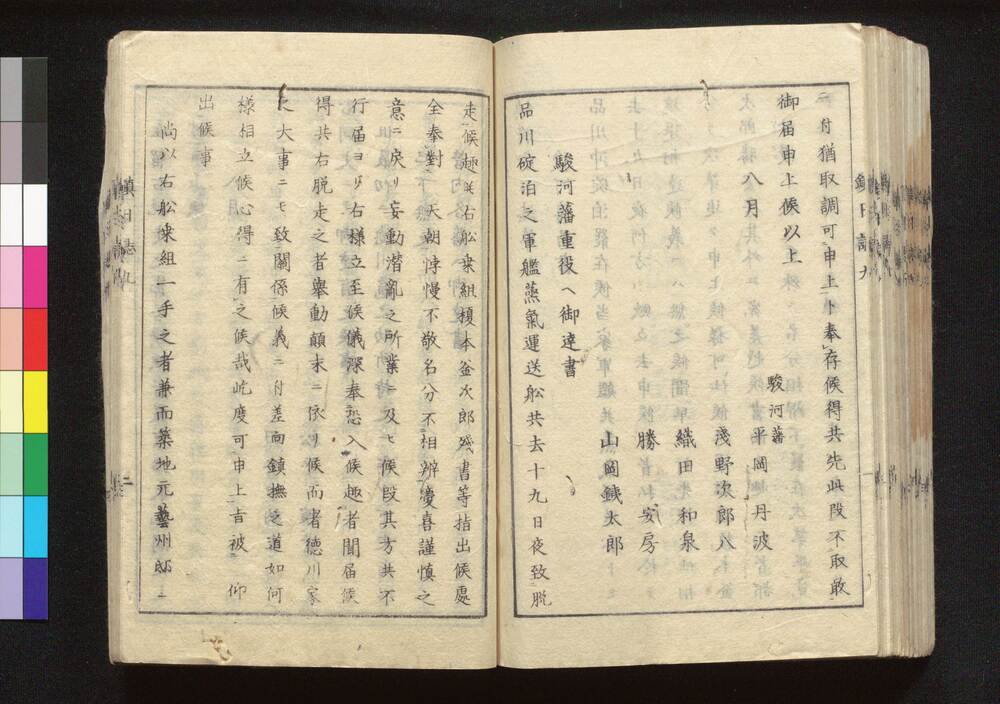 ニ付猶取調可申上ト奉存候得共先此段不取敢
御届申上候以上
八月
駿河藩
平岡丹波
淺野次郎八
織田和泉
勝安房
山岡鐵太郎
駿河藩重役ヘ御達書
品川碇泊之軍艦蒸氣運送舩共去十九日夜致脱
走候趣ニ右舩乗組榎本釜次郎殘書等指出候處
全奉對　天朝悖慢不敬名分不相辨慶喜謹慎之
意ニ戻リ妄動潜亂之所業ニ及ヒ候段其方共不
行届ヨリ右様立至候儀深奉恐入候趣者聞届候
得共右脱走之者舉動顛末ニ依リ候而者徳川家
之大事ニモ致關係候義ニ付差向鎮撫之道如何
様相立候心得ニ有之候哉屹度可申上旨被　仰
出候事
尚以右舩乗組一手之者兼而築地元藝州邸ニ
鎮日誌九
二